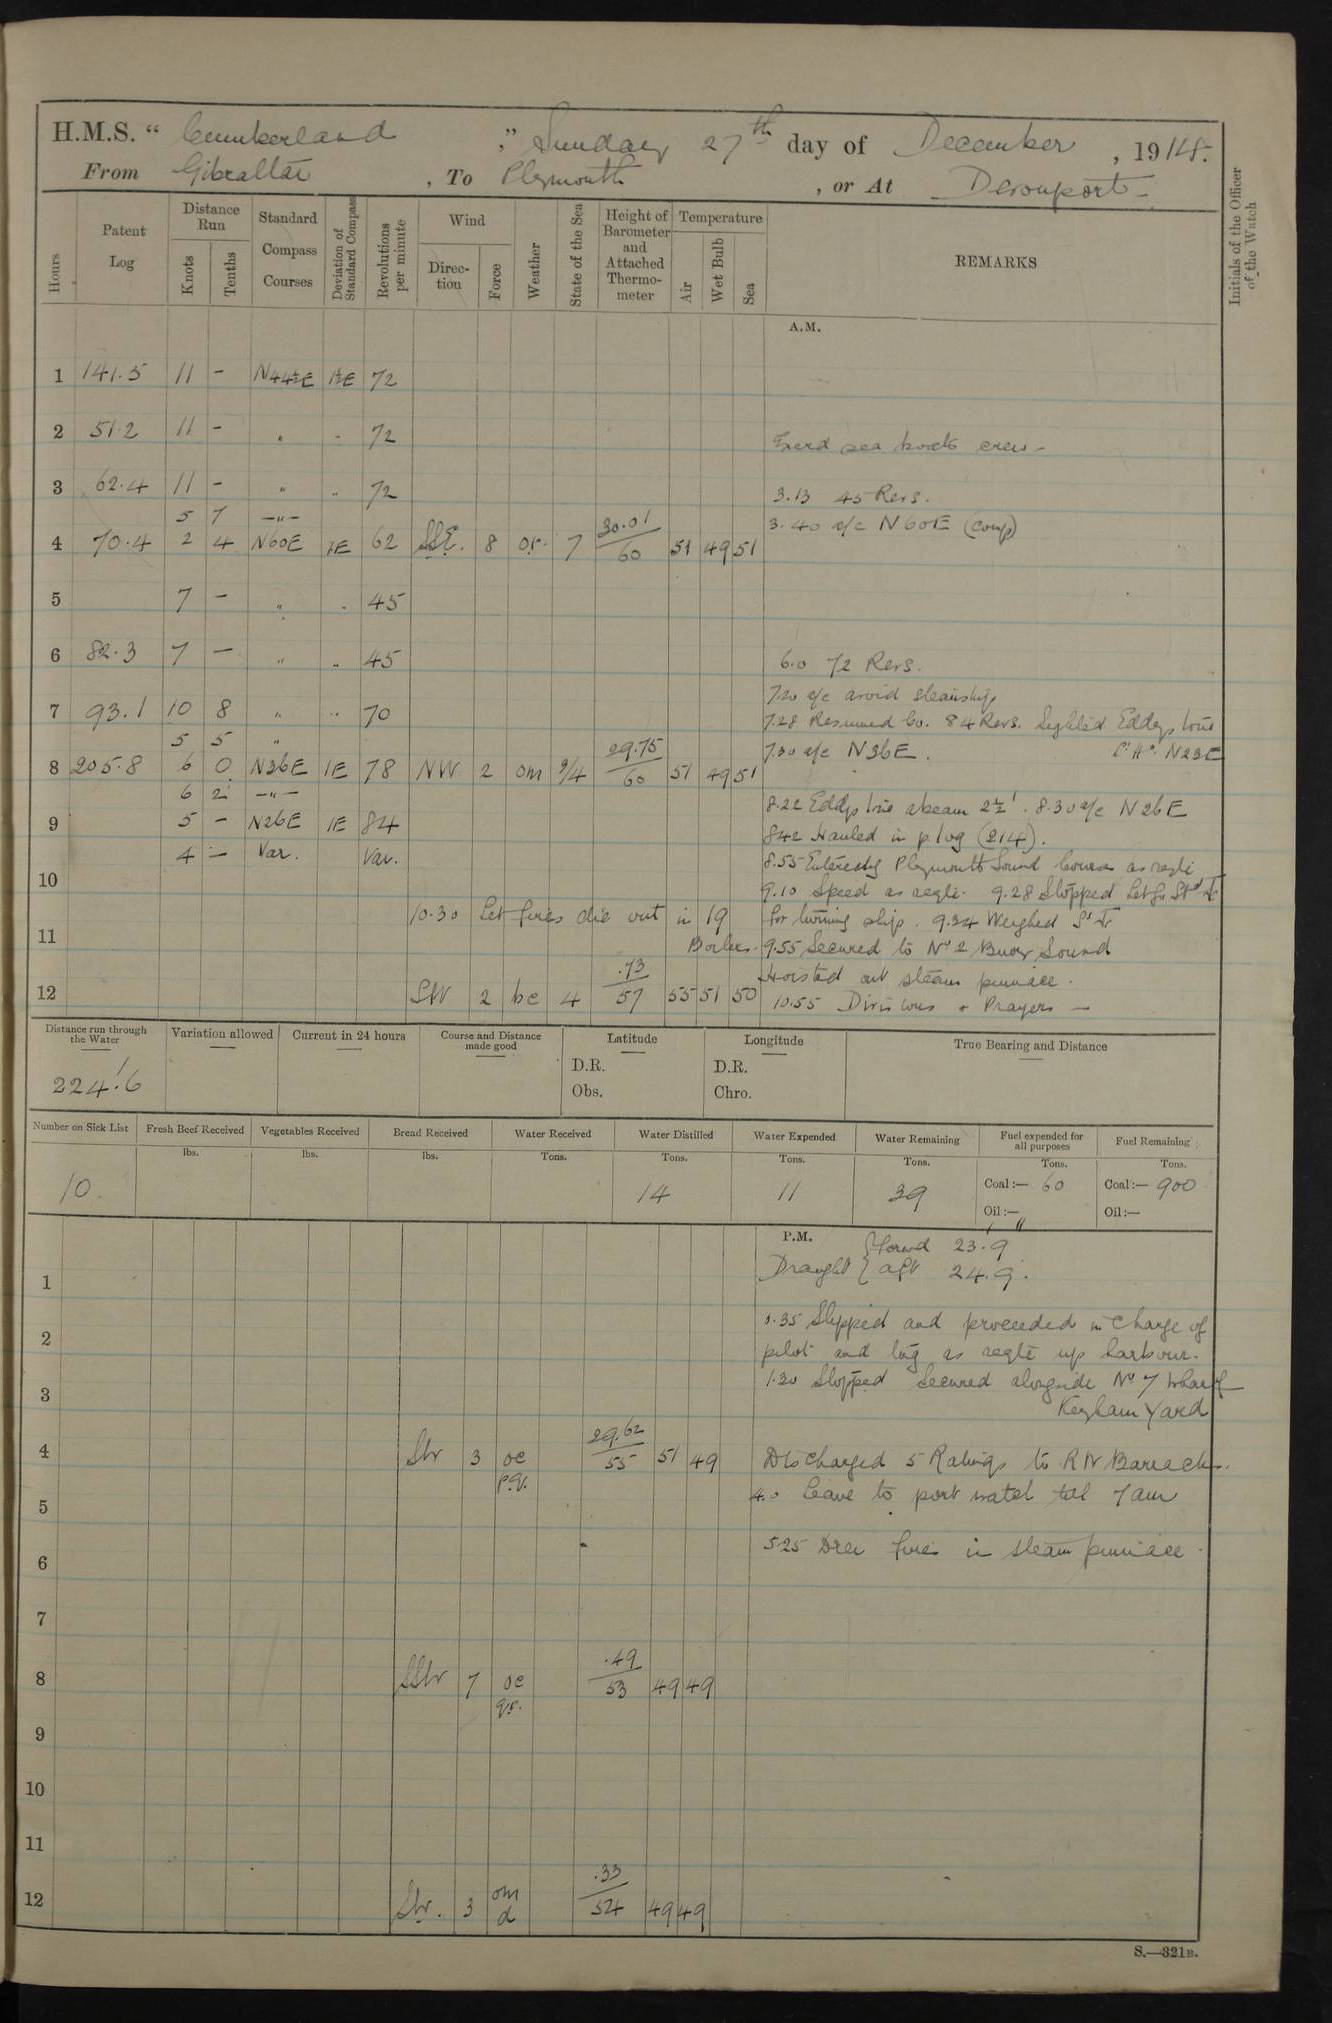 H.M.S. " Cumberland " Sunday 27th day of December , 1914.
From Gibraltar , To Plymouth , or At Devonport -
Hours
Patent Log
Distance Run
Knots
Tenths
Standard Compass Courses
Deviation of Standard Compass
Revolutions per minute
Wind
Direction
Force
Weather
State of the Sea
Height of Barometer and Attached Thermometer
Temperature
Air
Wet Bulb
Sea
REMARKS
Initials of the Officer of the Watch
A.M.
1 141.5 11 - N44½E 1½E 72
2 51.2 11 - " " 72
Exerd sea boats crew -
3 62.4 11 - " " 72
3.13 45 Revs.
5 7 -"-
3.40 a/c N60E (comp)
4 70.4 2 4 N60E 1E 62 SSE. 8 or. 7 30.01/60 51 49 51
5 7 - " " 45
6 82.3 7 - " " 45
6.0 72 Revs.
7.20 a/c avoid steamship
7 93.1 10 8 " " 70
7.28 Resumed Co. 84 Revs. Sighted Eddystone
5 5 "
7.30 a/c N36E. N23E
8 205.8 6 0 N36E 1E 78 NW 2 om 3/4 29.75/60 51 49 51
6 2 -"-
8.22 Eddystone abeam 2½'. 8.30 a/c N26E
9 5 - N26E 1E 84
8.42 Hauled in p log (214).
4 - Var. Var.
8.55 Entered Plymouth Sound Courses as reqte
10
9.10 Speed as reqte. 9.28 Stopped let go Stbd
10.30 Let fires die out in 19 Boilers.
for turning ship. 9.34 Weighed
11
9.55 Secured to No 2 Buoy Sound
Hoisted out steam pinnace.
12 SW 2 bc 4 .73/57 55 51 50
10.55 Divisions & Prayers -
Distance run through the Water
Variation allowed
Current in 24 hours
Course and Distance made good
Latitude
D.R.
Obs.
Longitude
D.R.
Chro.
True Bearing and Distance
224.6
Number on Sick List
Fresh Beef Received
lbs.
Vegetables Received
lbs.
Bread Received
lbs.
Water Received
Tons.
Water Distilled
Tons.
Water Expended
Tons.
Water Remaining
Tons.
Fuel expended for all purposes
Tons.
Fuel Remaining
Tons.
10. 14 11 39 Coal:— 60 Coal:— 900
Oil:— Oil:—
P.M.
Draught { Forwd 23' 9"
1
aft 24. 9.
0.35 Slipped and proceeded in charge of
2
pilot and tug as reqte up harbour.
3
1.20 Stopped Secured alongside No 7 Wharf
Keyham Yard
4 SW 3 oc p.q. 29.62/55 51 49
Discharged 5 Ratings to RN Barracks.
4.0 Leave to port watch till 7 am
5
5.25 Drew fires in steam pinnace.
6
7
8 SSW 7 oc q.r. .49/53 49 49
9
10
11
12 SW. 3 om d .33/54 49 49
S.—321B.